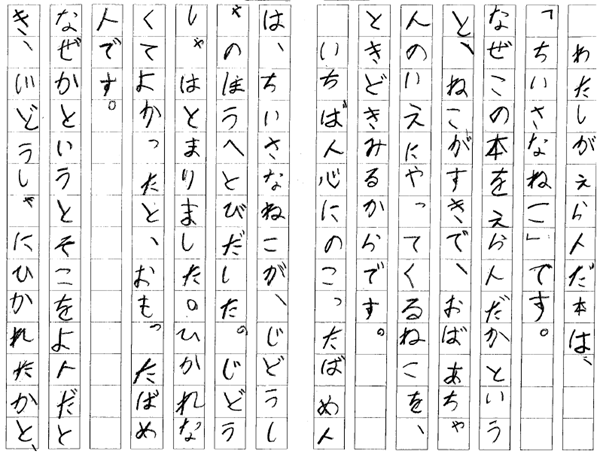 わたしがえらんだ本は、
「ちいさなねこ」です。
なぜこの本をえらんだかという
と、ねこがすきで、おばあちゃ
んのいえにやってくるねこを、
ときどきみるからです。
いちばん心にのこったばめん
は、ちいさなねこが、じどうし
ゃのほうへとびだした。じどう
しゃはとまりました。ひかれな
くてよかったと、おもったばめ
んです。
なぜかというとそこをよんだと
き、じどうしゃにひかれたかと、